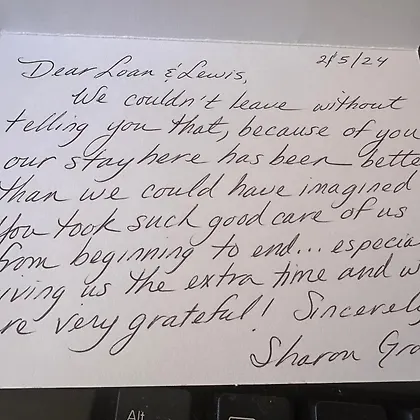 2/5/24
Dear Loan & Lewis,
We couldn't leave without
telling you that, because of you
our stay here has been bette
than we could have imagined
You took such good care of us
from beginning to end... especia
iving us the extra time and w
re very grateful! Sincerel
Sharon Gra
Alt